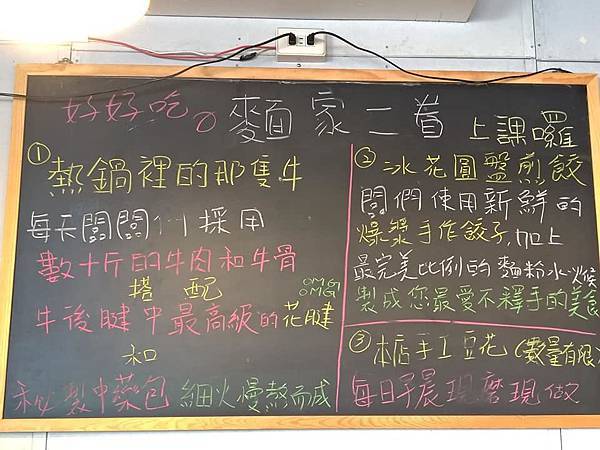 好好吃。麵家二眷 上課囉
①熱鍋裡的那隻牛
每天闆闆們採用
數十斤的牛肉和牛骨
搭配
OMG
OMG
牛後腱中最高級的花腱
和
秘製中藥包 細火慢熬而成
②冰花圓盤煎餃
闆們使用新鮮的
爆漿手作餃子,加上
最完美比例的麵粉水,煉
製成您最愛不釋手的美食
③本店手工豆花(數量有限)
每日子晨現磨現做